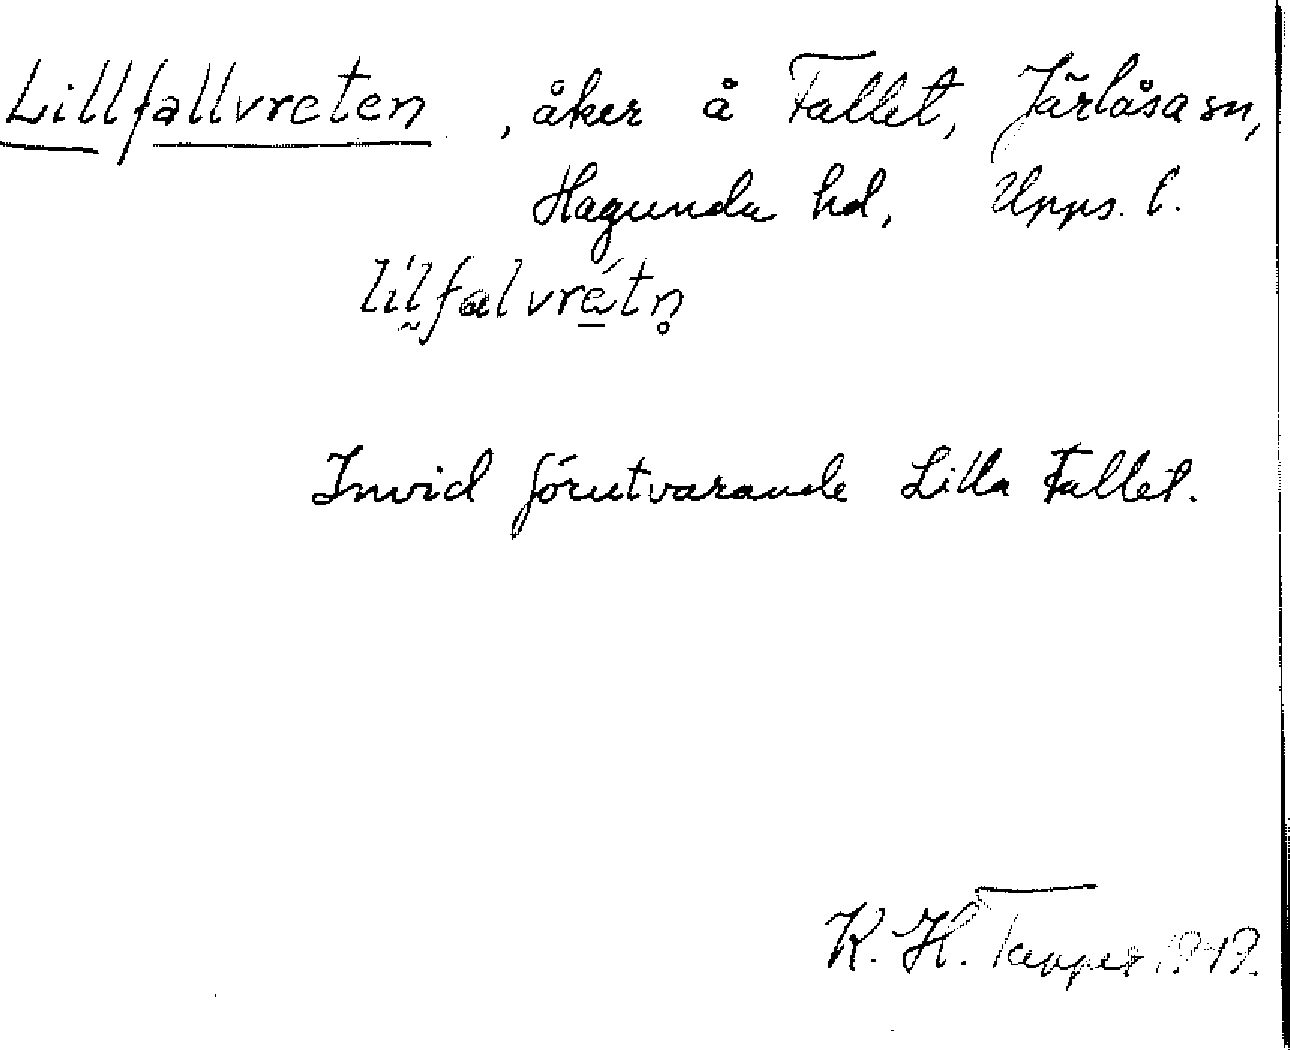 Lillfallvreten, åker å Fallet, Järlåsa sn,
Hagunda hd, Upps. l.
lílfalvrétn̥
Invid förutvarande Lilla Fallet.
K. H.